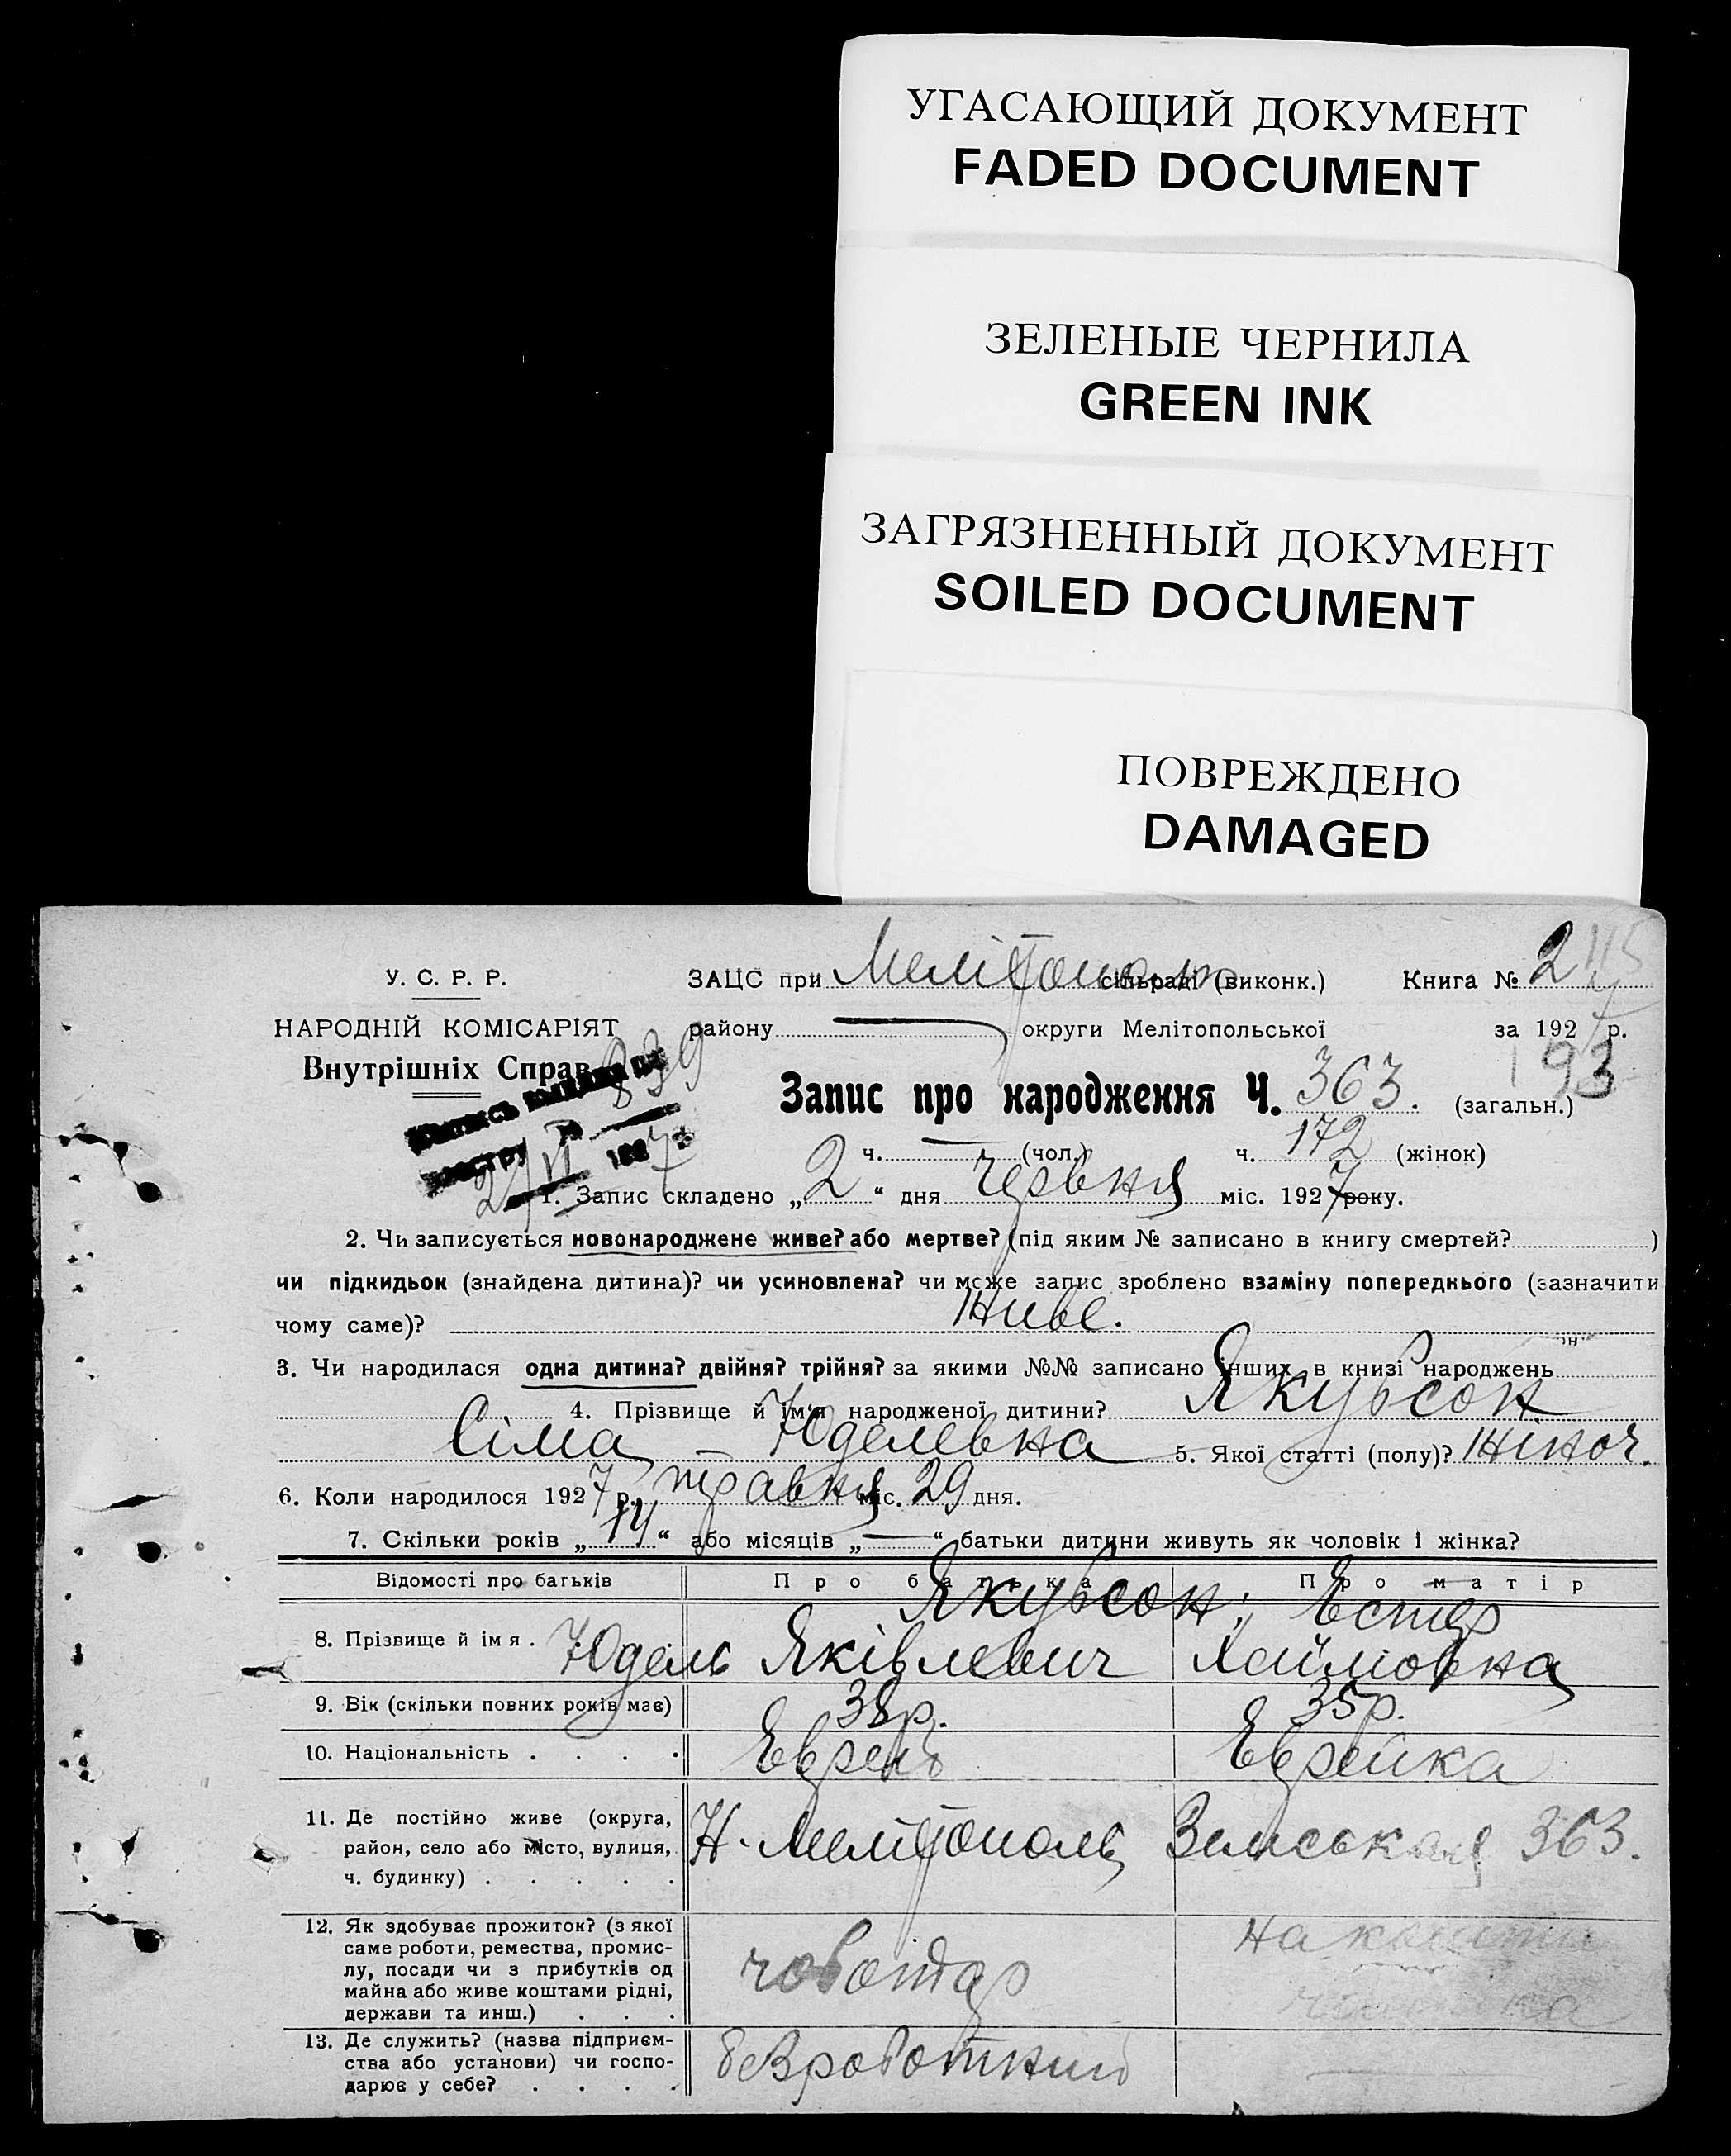 УГАСАЮЩИЙ ДОКУМЕНТ
FADED DOCUMENT
ЗЕЛЕНЫЕ ЧЕРНИЛА
GREEN INK
ЗАГРЯЗНЕННЫЙ ДОКУМЕНТ
SOILED DOCUMENT
ПОВРЕЖДЕНО
DAMAGED
У. С. Р. Р.
ЗАЦС при Мелітополь сільраді (виконк.) Книга № 2
НАРОДНІЙ КОМІСАРІЯТ
району округи Мелітопольської за 1927 р.
Внутрішніх Справ
839
193
Запис про народження Ч. 363. (загальн.)
ч. — (чол.) ч. 172 (жінок)
1. Запис складено „2“ дня червня міс. 1927 року.
2. Чи записується новонароджене живе? або мертве? (під яким № записано в книгу смертей? )
чи підкидьок (знайдена дитина)? чи усиновлена? чи може запис зроблено взаміну попереднього (зазначити
чому саме)? Живе.
3. Чи народилася одна дитина? двійня? трійня? за якими №№ записано інших в книзі народжень
4. Прізвище й ім'я народженої дитини? Якубсон
Сіма Юделевна 5. Якої статті (полу)? Жіноч.
6. Коли народилося 1927 р. травня міс. 29 дня.
7. Скільки років „14“ або місяців „—“ батьки дитини живуть як чоловік і жінка?
Відомості про батьків Про батька Про матір
8. Прізвище й імя . Якубсон; Естер
Юдель Яківлевич Хаймовна
9. Вік (скільки повних років має) 38р. 35р.
10. Національність . . . . Еврей Еврейка
11. Де постійно живе (округа,
район, село або місто, вулиця,
ч. будинку) . . . . .
Н. Мелітополь Земськая 363.
12. Як здобуває прожиток? (з якої
саме роботи, ремества, промис-
лу, посади чи з прибутків од
майна або живе коштами рідні,
держави та инш.) . . .
чоботар
на кошти
13. Де служить? (назва підприєм-
ства або установи) чи госпо-
дарює у себе? . . . .
безроботний